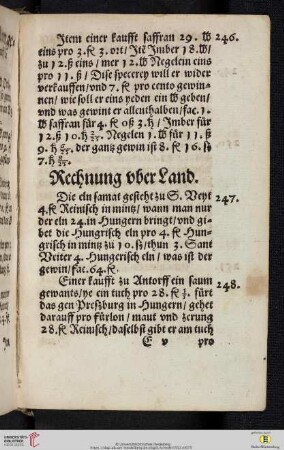 Item einer kaufft saffran 29. ℔ 246.
eins pro 3. fl 3. ort/ Itē Imber 18. ℔/
zu 12. ß eins/ mer 12. ℔ Negelein eins
pro 11. ß/ Dise specerey will er wider
verkauffen/ vnd 7. fl pro cento gewin-
nen/ wie soll er eins yeden ein ℔ geben/
vnd was gewint er allenthalben/ fac. 1.
℔ saffran für 4. fl 0ß 3. h/ Imber für
12. ß 10. h Negelen 1. ℔ für 11. ß
9. h der gantz gewin ist 8. fl 16. ß
7. h
Rechnung vber Land.
Die eln samat gesteht zu S. Veyt 247.
4. fl Reinisch in müntz/ wann man nur
der eln 24. in Hungern bringt/ vnd gi-
bet die Hungrisch eln pro 4. fl Hun-
grisch in müntz zu 10. ß/ thun 3. Sant
Veiter 4. Hungerisch eln/ was ist der
gewin/ fac. 64. fl.
Einer kaufft zu Antorff ein saum 248.
gewants/ ye ein tuch pro 28. fl fürt
das gen Preßburg in Hungern/ gehet
darauff pro fürlon/ maut vnd zerung
28. fl Reinisch/ daselbst gibt er am tuch
E v pro